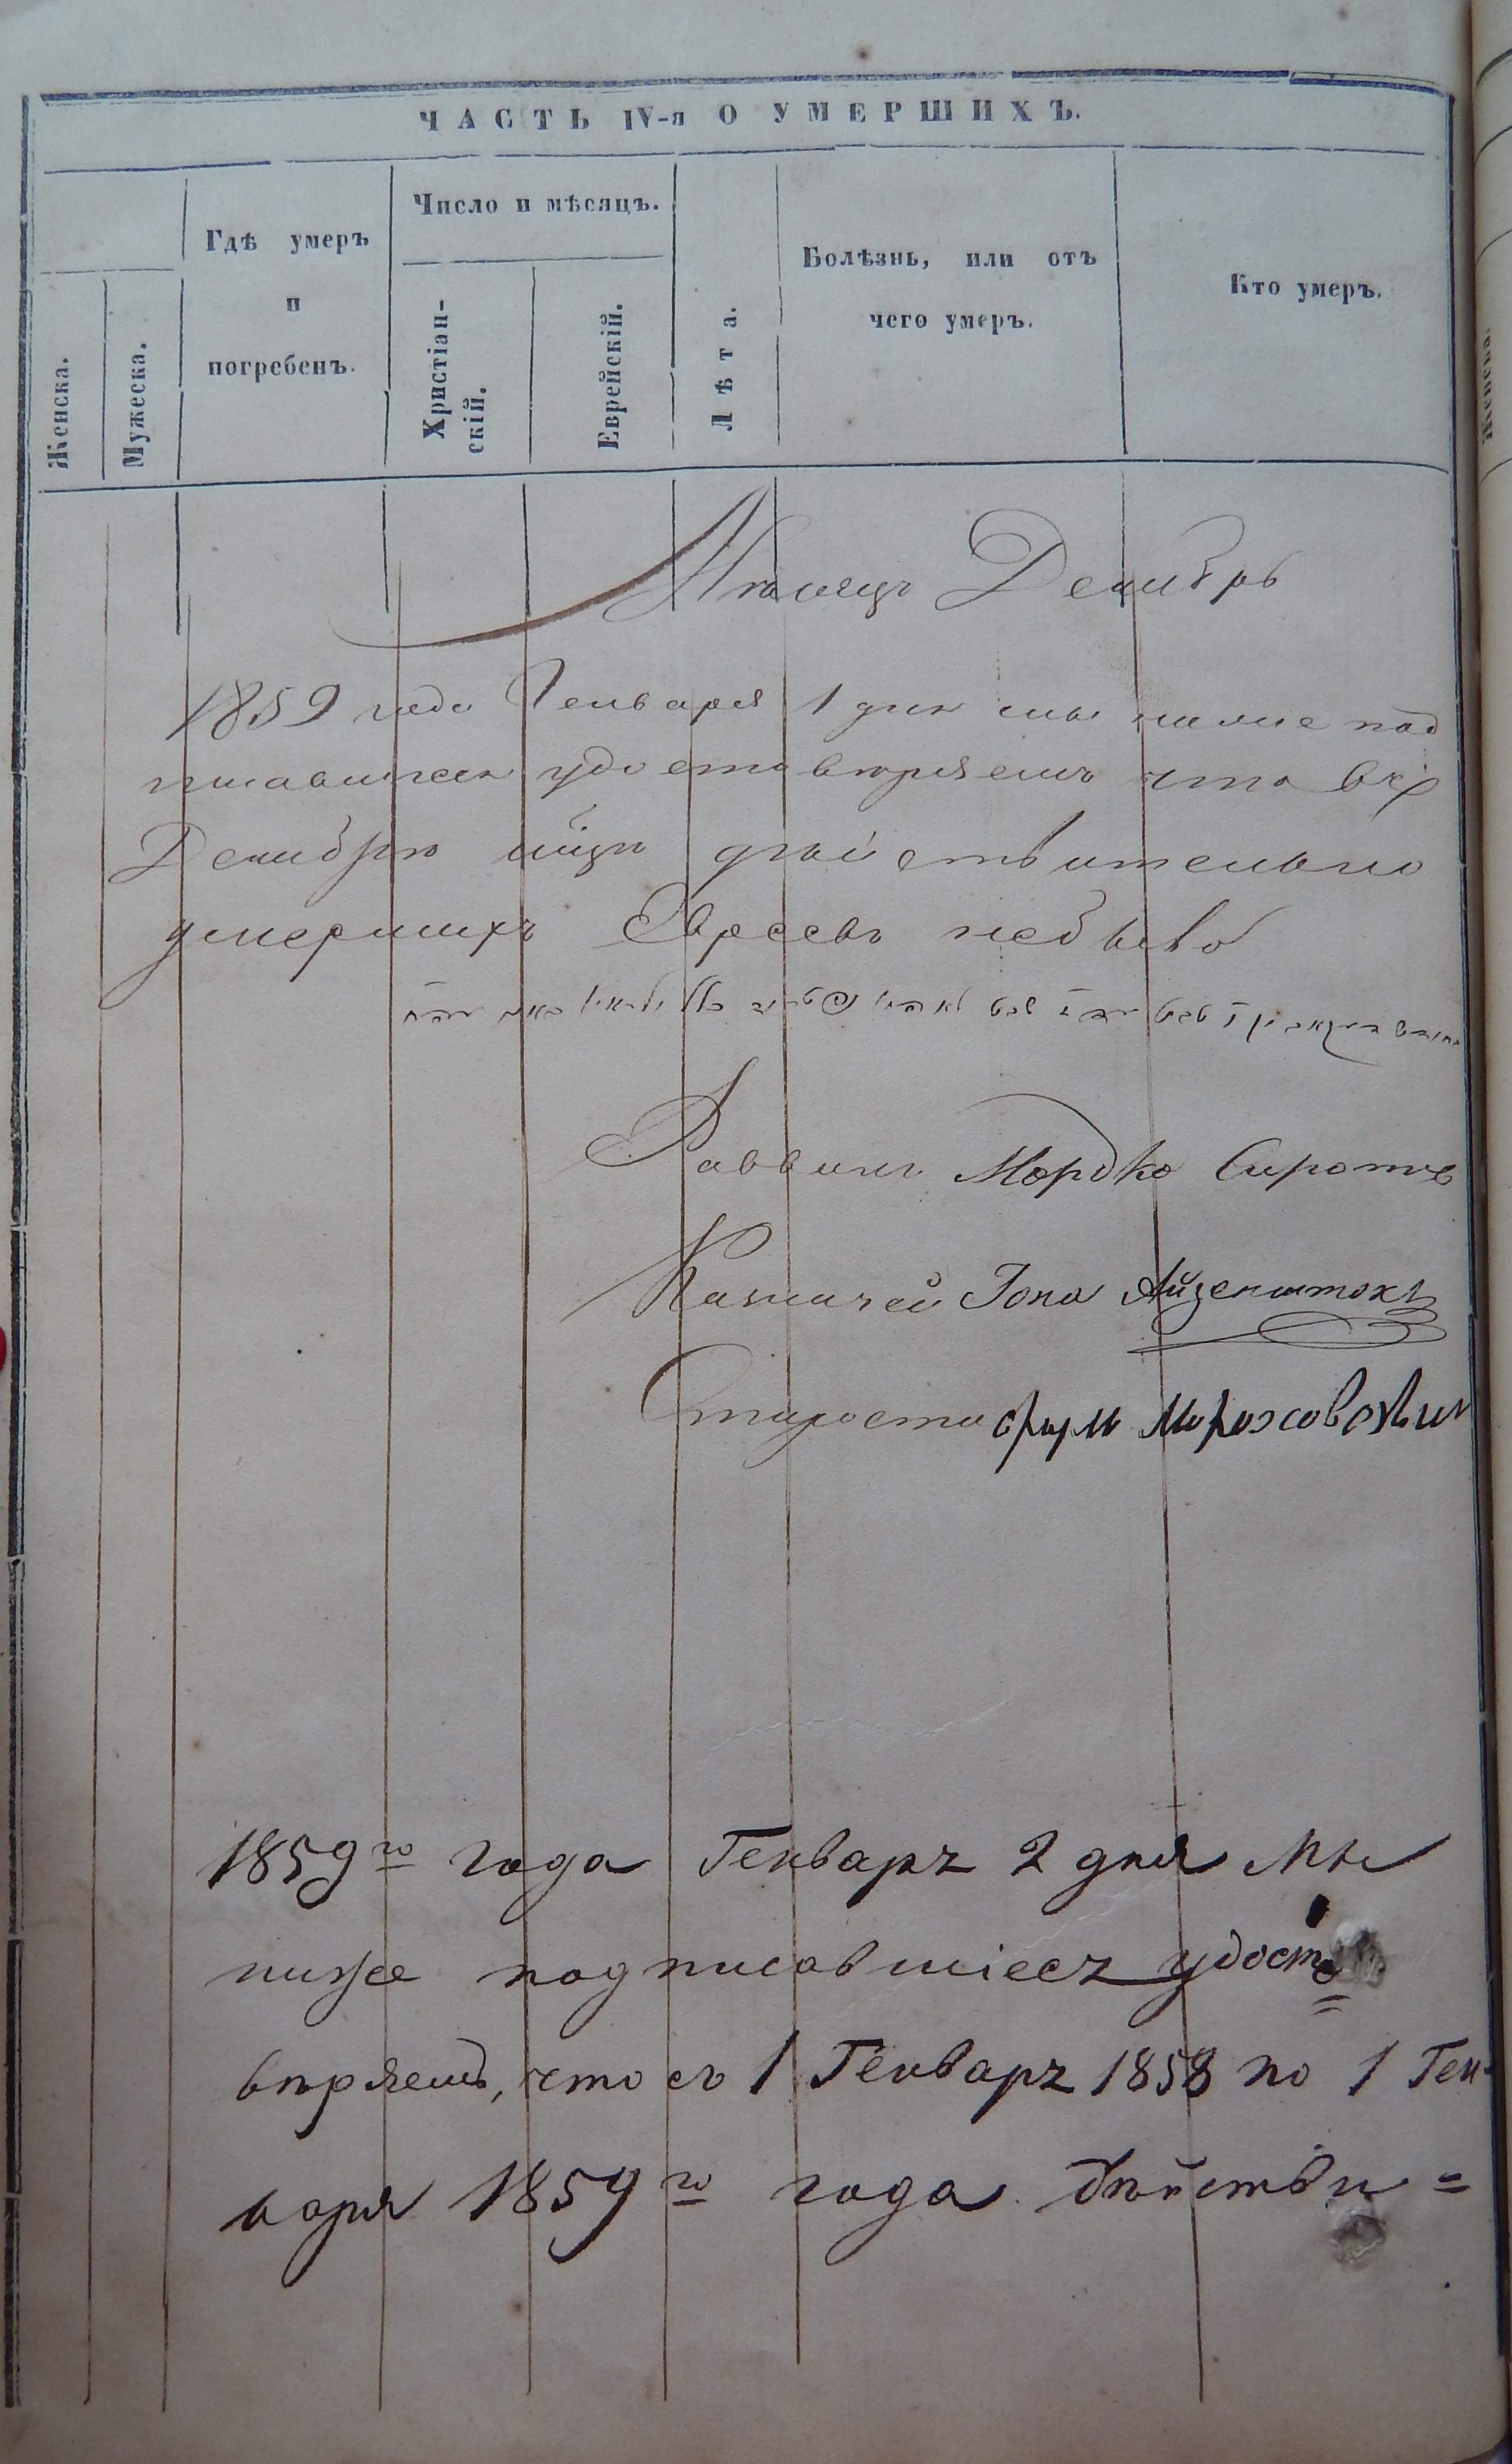 ЧАСТЬ IV-я О УМЕРШИХЪ.
Женска.
Мужеска.
Гдѣ умеръ
и
погребенъ.
Число и мѣсяцъ.
Христіан-
скій.
Еврейскій.
Лѣта.
Болѣзнь, или отъ
чего умеръ.
Кто умеръ.
Мѣсяцъ Декабрь
1859 года Генваря 1 дня мы ниже под
писавшіеся удостовѣряемъ что въ
Декабрѣ мцѣ дѣйствительно
умершихъ Евреевъ небыло
Раввинъ Мордко Сирота
Казначей Іона Айзенштокъ
Староста Срул
1859го года Генваръ 2 дня Мы
ниже подписавшіесъ удосто=
вѣряемъ, что съ 1 Генваръ 1858 по 1 Ген-
варя 1859го года дѣйстви=
Женска.